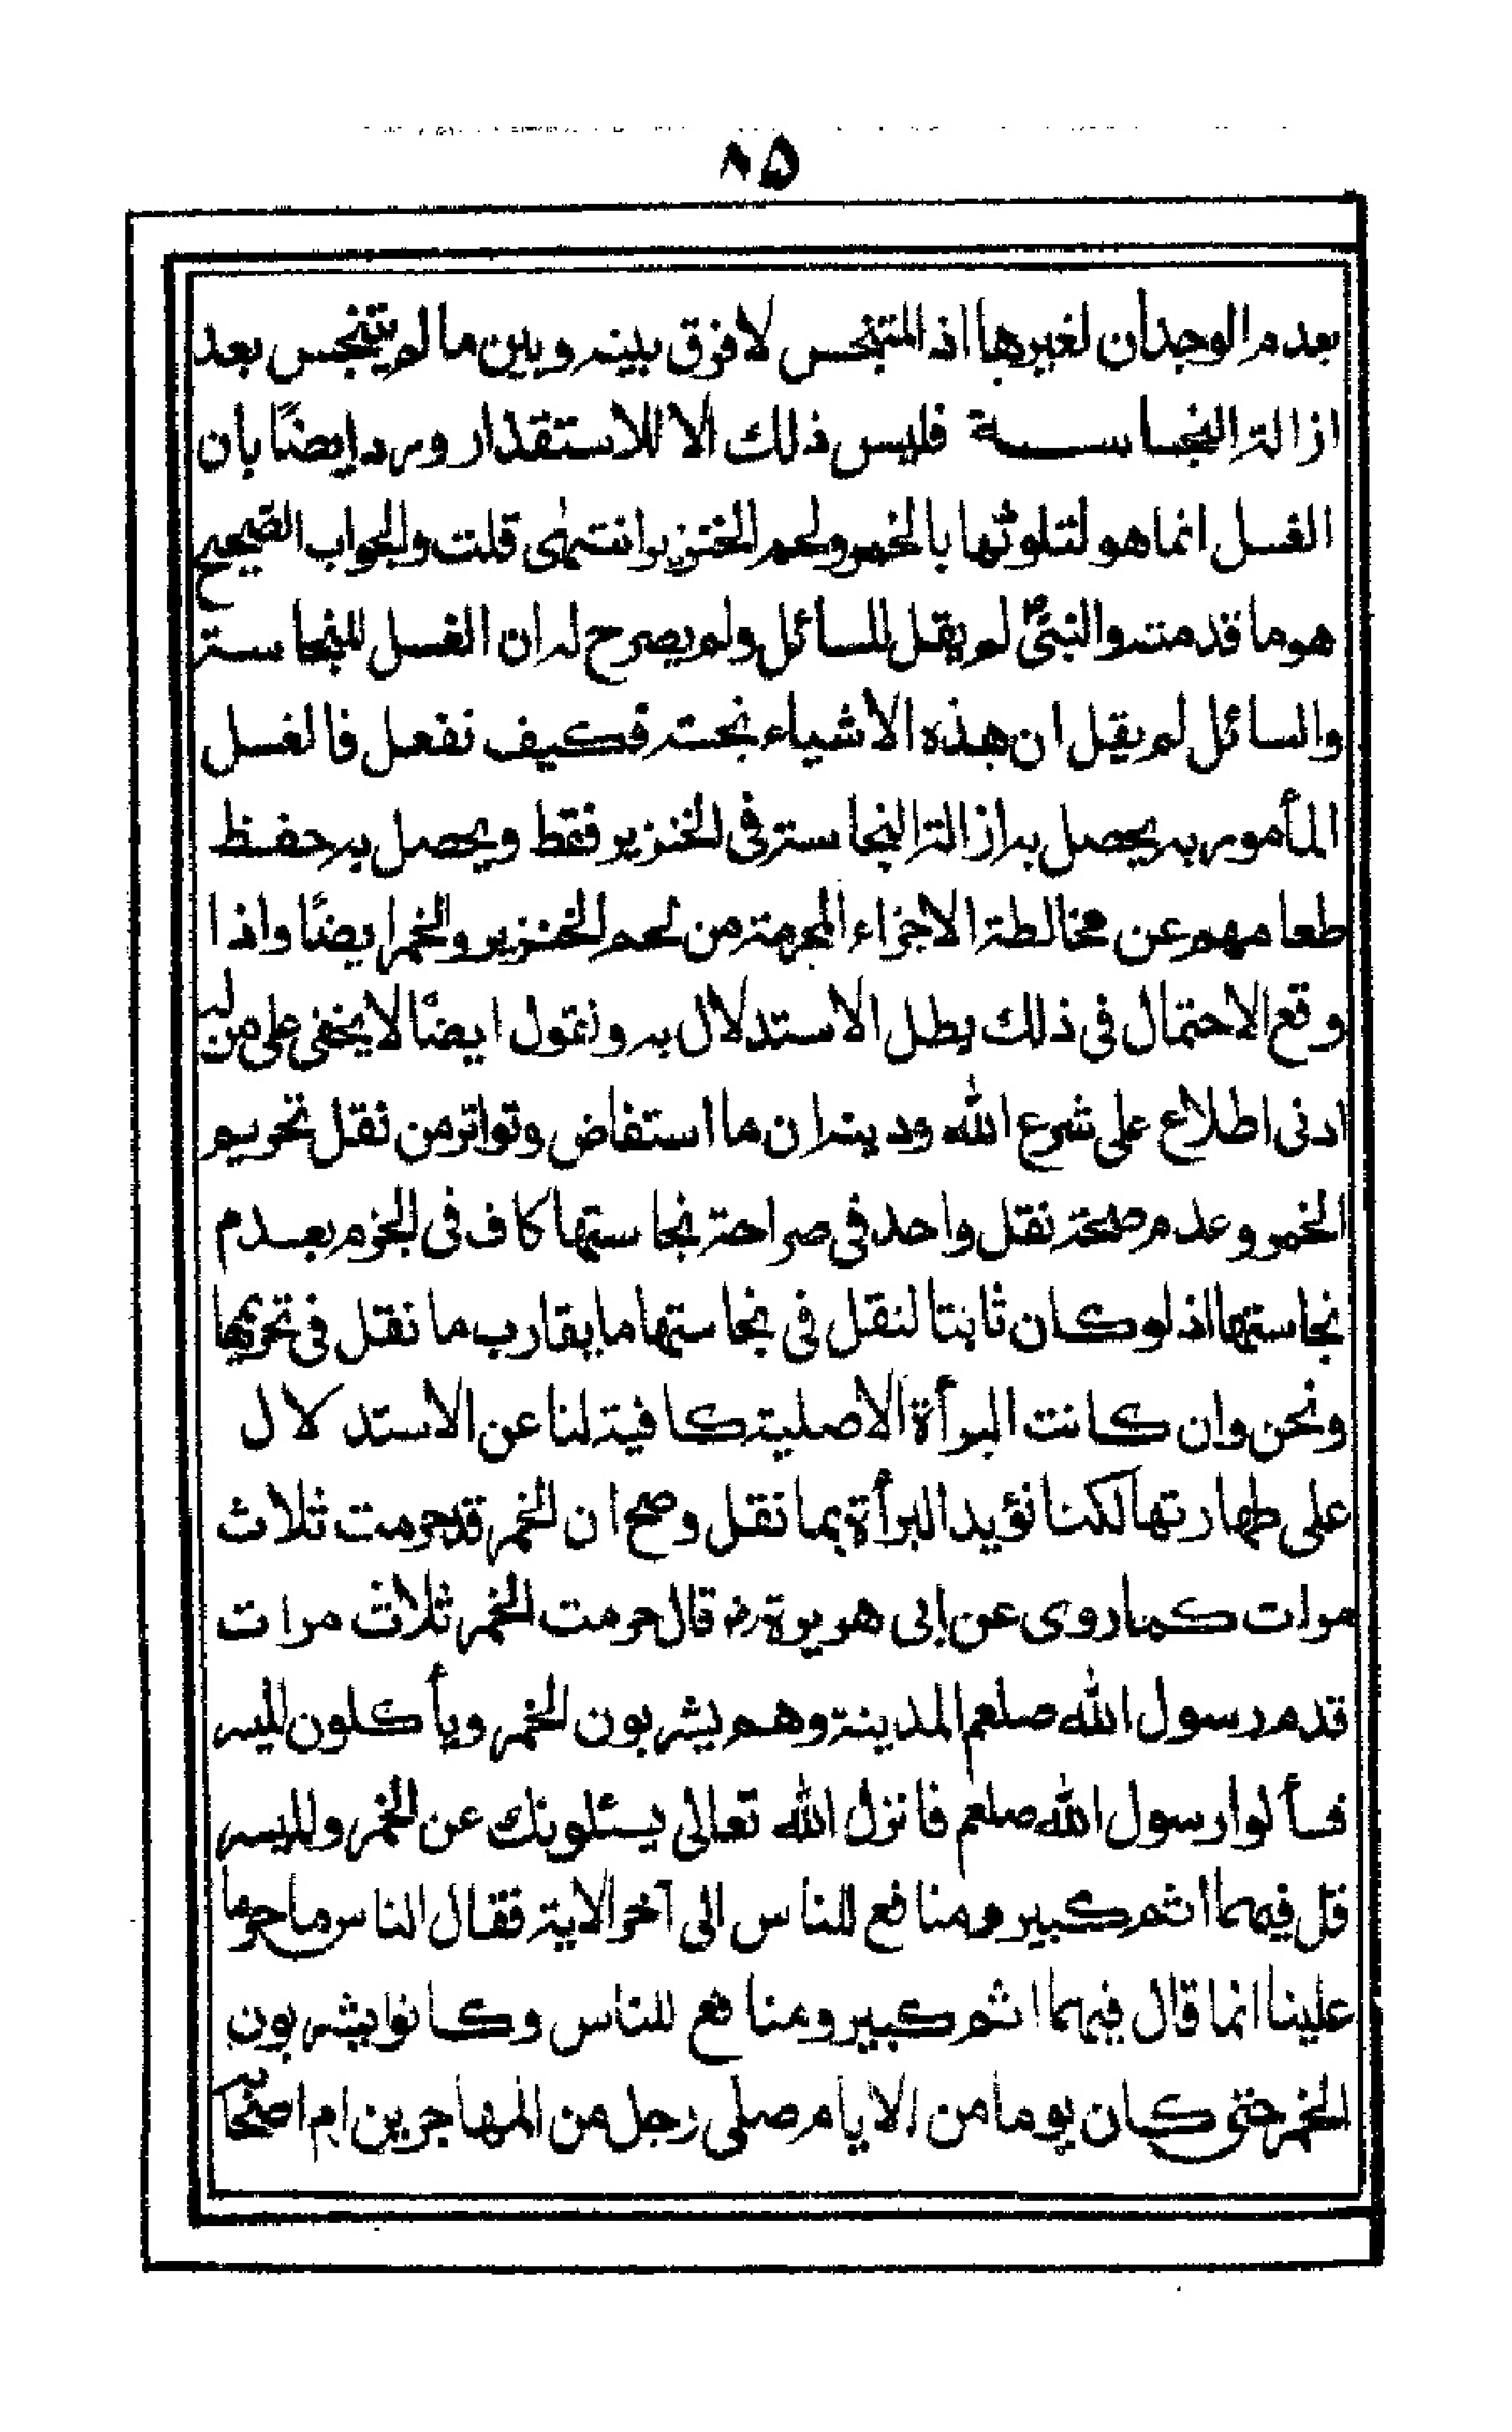 ٨٥
بعدم الوجدان لغيرها اذ المتنجس لا فرق بينه وبين ما لم يتنجس بعد
ازالة النجاسة فليس ذلك الا للاستقذار ورد ايضًا بان
الغسل انما هو لتلوثها بالخمر ولحم الخنزير انتهٰى قلت والجواب الصحيح
هو ما قدمته والنبیؐ لم يقل للسائل ولم يصرح له ان الغسل للنجاسة
والسائل لم يقل ان هذه الاشياء نجسة فكيف نفعل فالغسل
المأمور به يحصل به ازالة النجاسة فى الخنزير فقط ويحصل به حفظ
طعامهم عن مخالطة الاجزاء المحرمة من لحم الخنزير والخمر ايضًا واذا
وقع الاحتمال فى ذلك بطل الاستدلال به ونقول ايضًا لا يخفى على من له
ادنى اطلاع على شرع الله ودينه ان ما استفاض وتواتر من نقل تحريم
الخمر وعدم صحة نقل واحد فى صراحة نجاستها كاف فى الجزم بعدم
نجاستها اذ لو كان ثابتا لنقل فى نجاستها ما يقارب ما نقل فى تحريمها
ونحن وان كانت البرأة الاصلية كافية لنا عن الاستدلال
على طهارتها لكنا نؤيد البرأة بما نقل وصح ان الخمر قد حرمت ثلاث
مرات كما روى عن ابى هريرة رض قال حرمت الخمر ثلاث مرات
قدم رسول الله صلعم المدينة وهم يشربون الخمر ويأكلون الميسر
فسألوا رسول الله صلعم فانزل الله تعالى يسئلونك عن الخمر والميسر
قل فيهما اثم كبير ومنافع للناس الى آخر الاية فقال الناس ما حرما
علينا انما قال فيهما اثم كبير ومنافع للناس وكانوا يشربون
الخمر حتى كان يوما من الايام صلى رجل من المهاجرين ام اصحابه